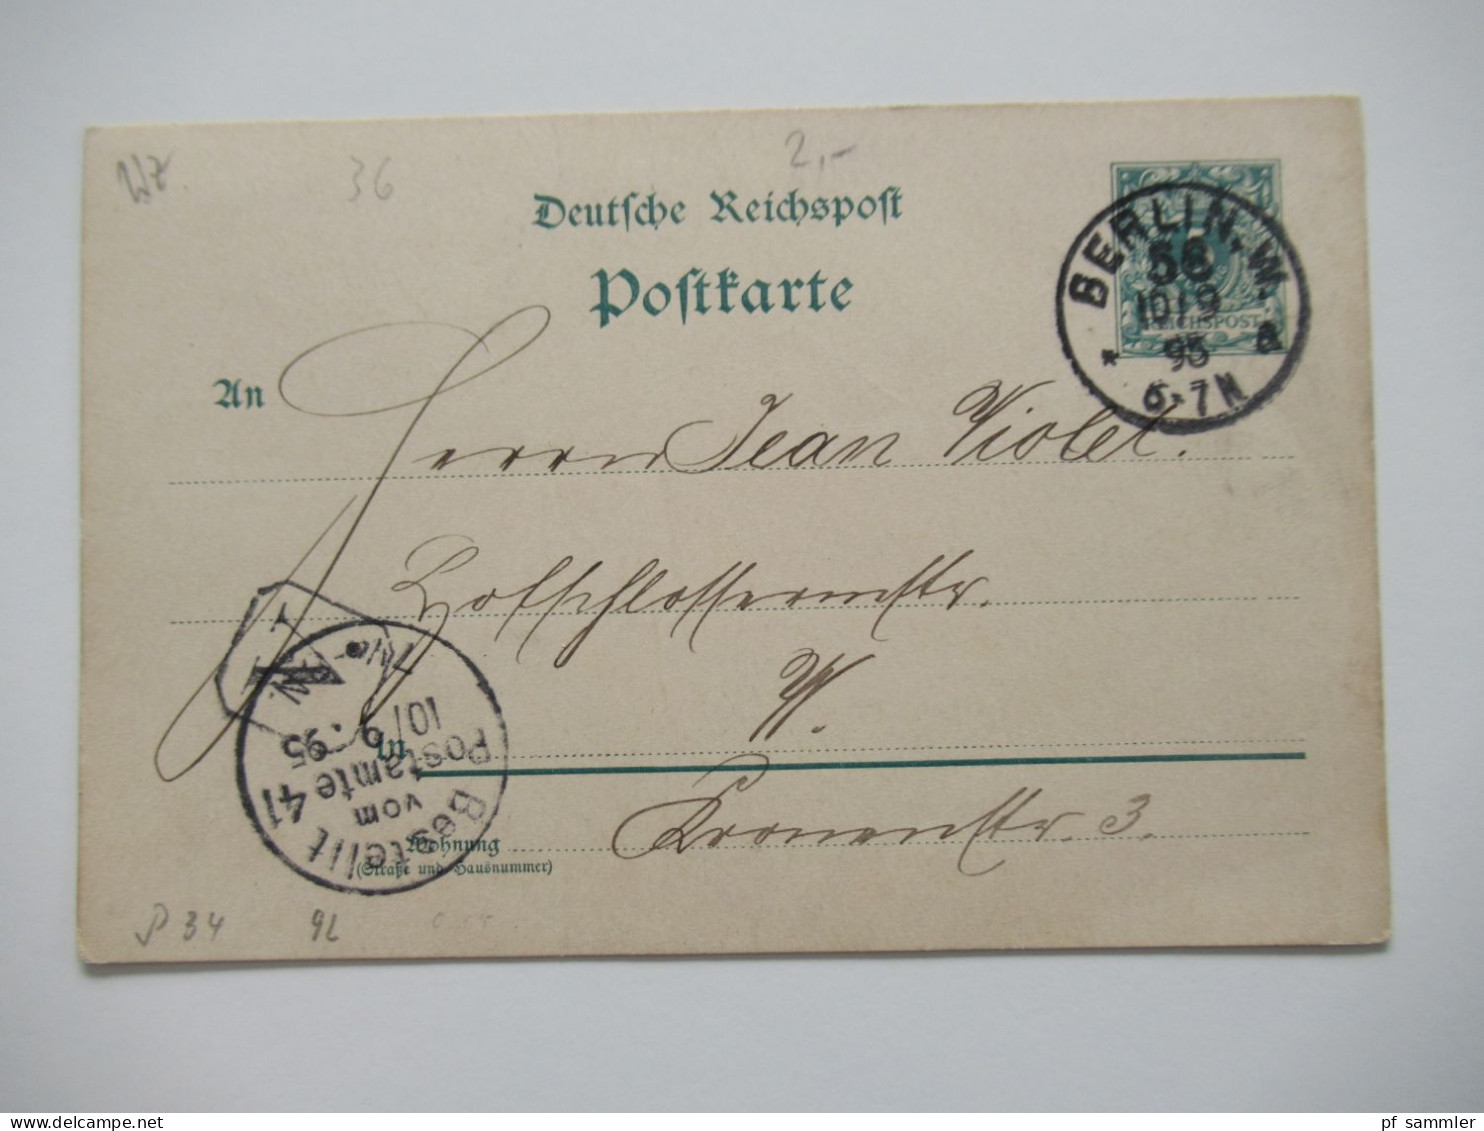 Wz
36
2,-
Deutsche Reichspost
Postkarte
BERLIN. W.
56
10/9
95
* a
6-7N
REICHSPOST
An Herrn Jean Violet.
Hofschlosserstr.
W.
in
Kronenstr. 3.
Wohnung
(Straße und Hausnummer)
Bestellt
vom
Postamte 41
10/9. 95
P 34
92
pf sammler